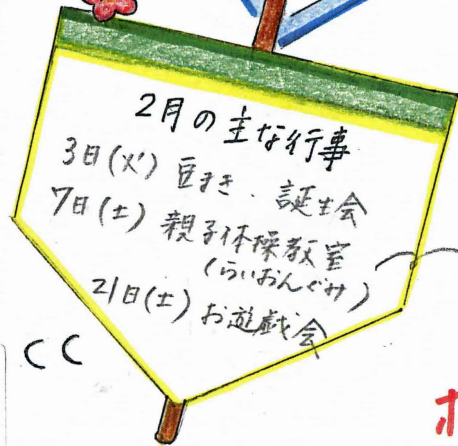 2月の主な行事
3日(火) 豆まき、誕生会
7日(土) 親子体操教室
(らいおんぐみ)
21日(土) お遊戯会